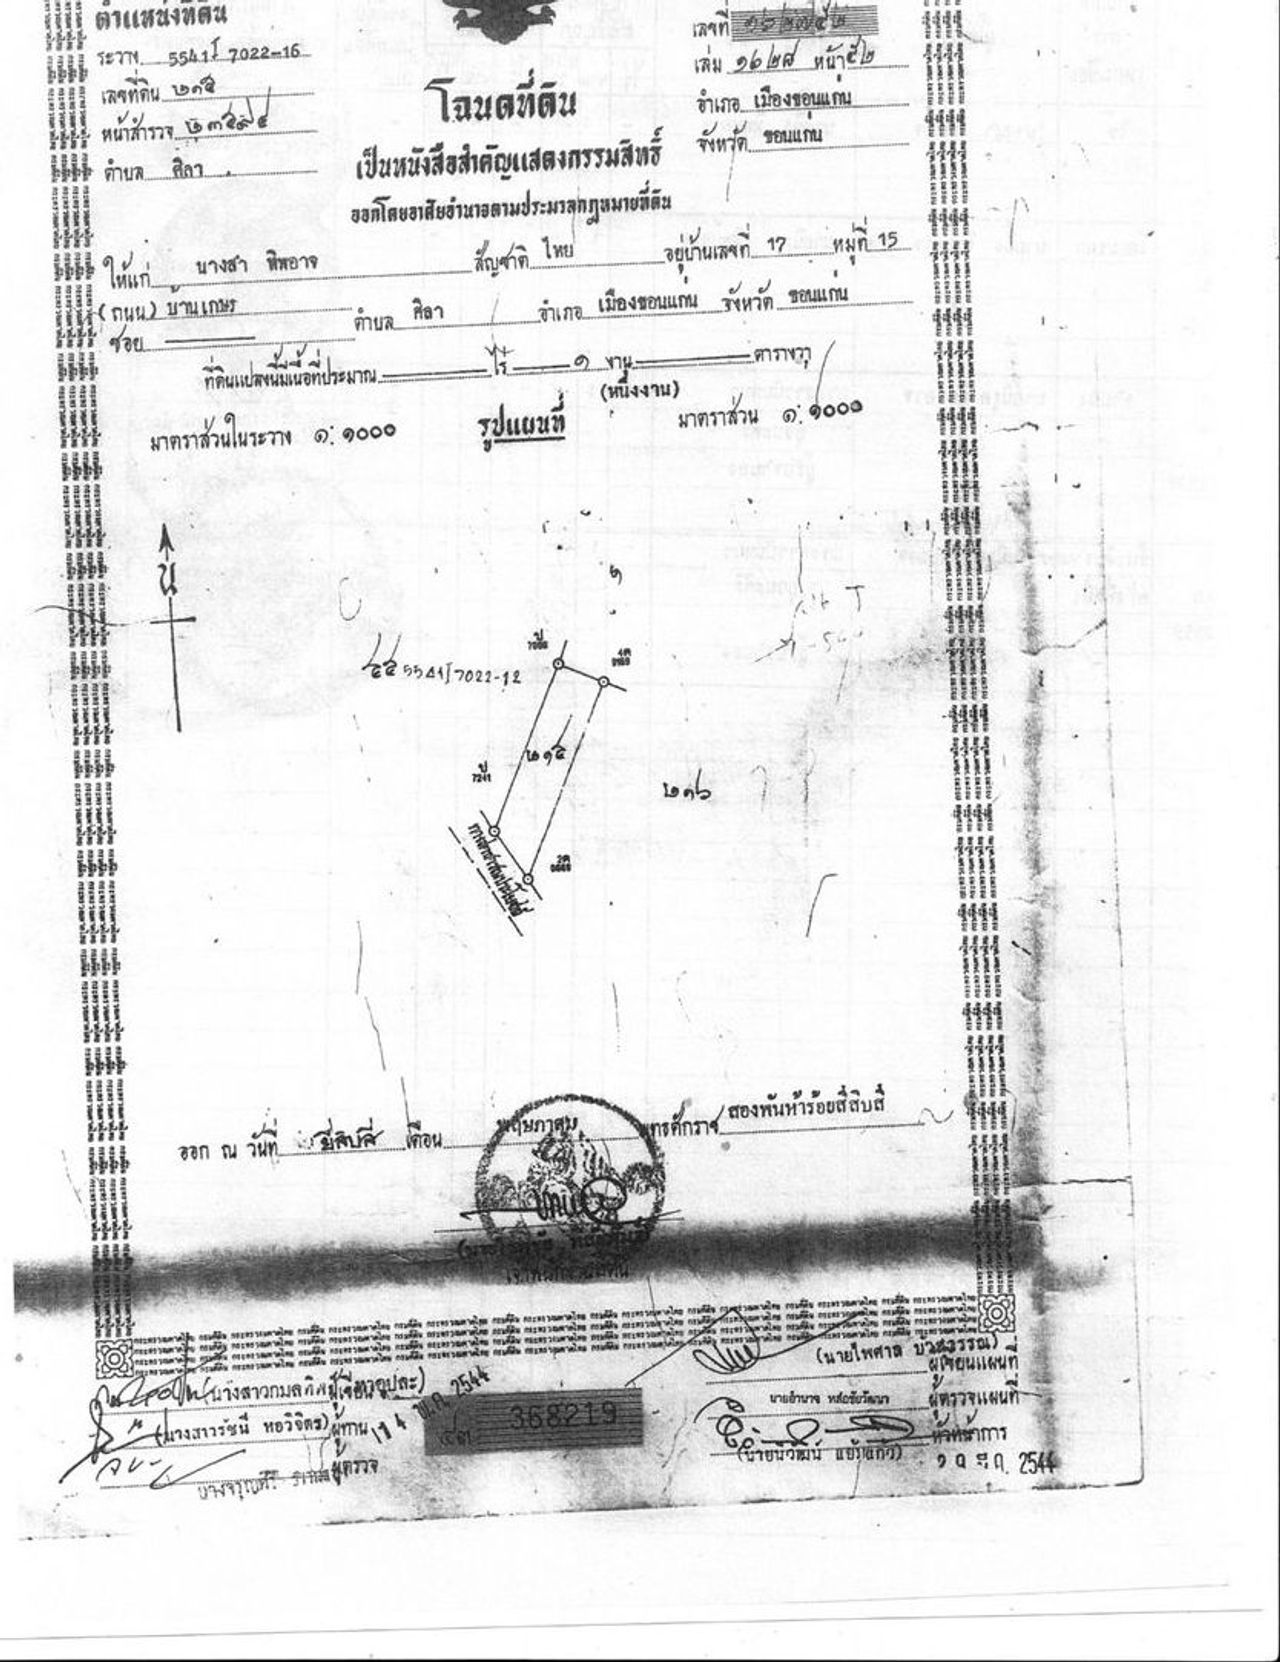 ตำแหน่งที่ดิน
ระวาง 5541 I 7022-16
เลขที่ดิน ๒๑๕
หน้าสำรวจ
ตำบล ศิลา
เลขที่
เล่ม ๑๖๒๘ หน้า ๕๒
อำเภอ เมืองขอนแก่น
จังหวัด ขอนแก่น
โฉนดที่ดิน
เป็นหนังสือสำคัญแสดงกรรมสิทธิ์
ออกโดยอาศัยอำนาจตามประมวลกฎหมายที่ดิน
ให้แก่ นางสา ทิพอาจ สัญชาติ ไทย อยู่บ้านเลขที่ 17 หมู่ที่ 15
(ถนน) บ้านเกษร
ซอย ตำบล ศิลา อำเภอ เมืองขอนแก่น จังหวัด ขอนแก่น
ที่ดินแปลงนี้มีเนื้อที่ประมาณ ไร่ ๑ งาน ตารางวา
(หนึ่งงาน)
มาตราส่วนในระวาง ๑:๑๐๐๐ รูปแผนที่ มาตราส่วน ๑:๑๐๐๐
น
5541 I 7022-12
๒๑๕
7241
๒๑๖
ทางสาธารณประโยชน์
ออก ณ วันที่ ยี่สิบสี่ เดือน พฤษภาคม พุทธศักราช สองพันห้าร้อยสี่สิบสี่
เจ้าพนักงานที่ดิน
(นายไพศาล บัวสุวรรณ)
ผู้เขียนแผนที่
ผู้เขียน
นายอำนาจ หล่อชัยวัฒนา ผู้ตรวจแผนที่
(นางสาวรัชนี หอวิจิตร) ผู้ทาน
368219
หัวหน้าการ
(นายนิวัฒน์ แย้มแก้ว)
ผู้ตรวจ
2544